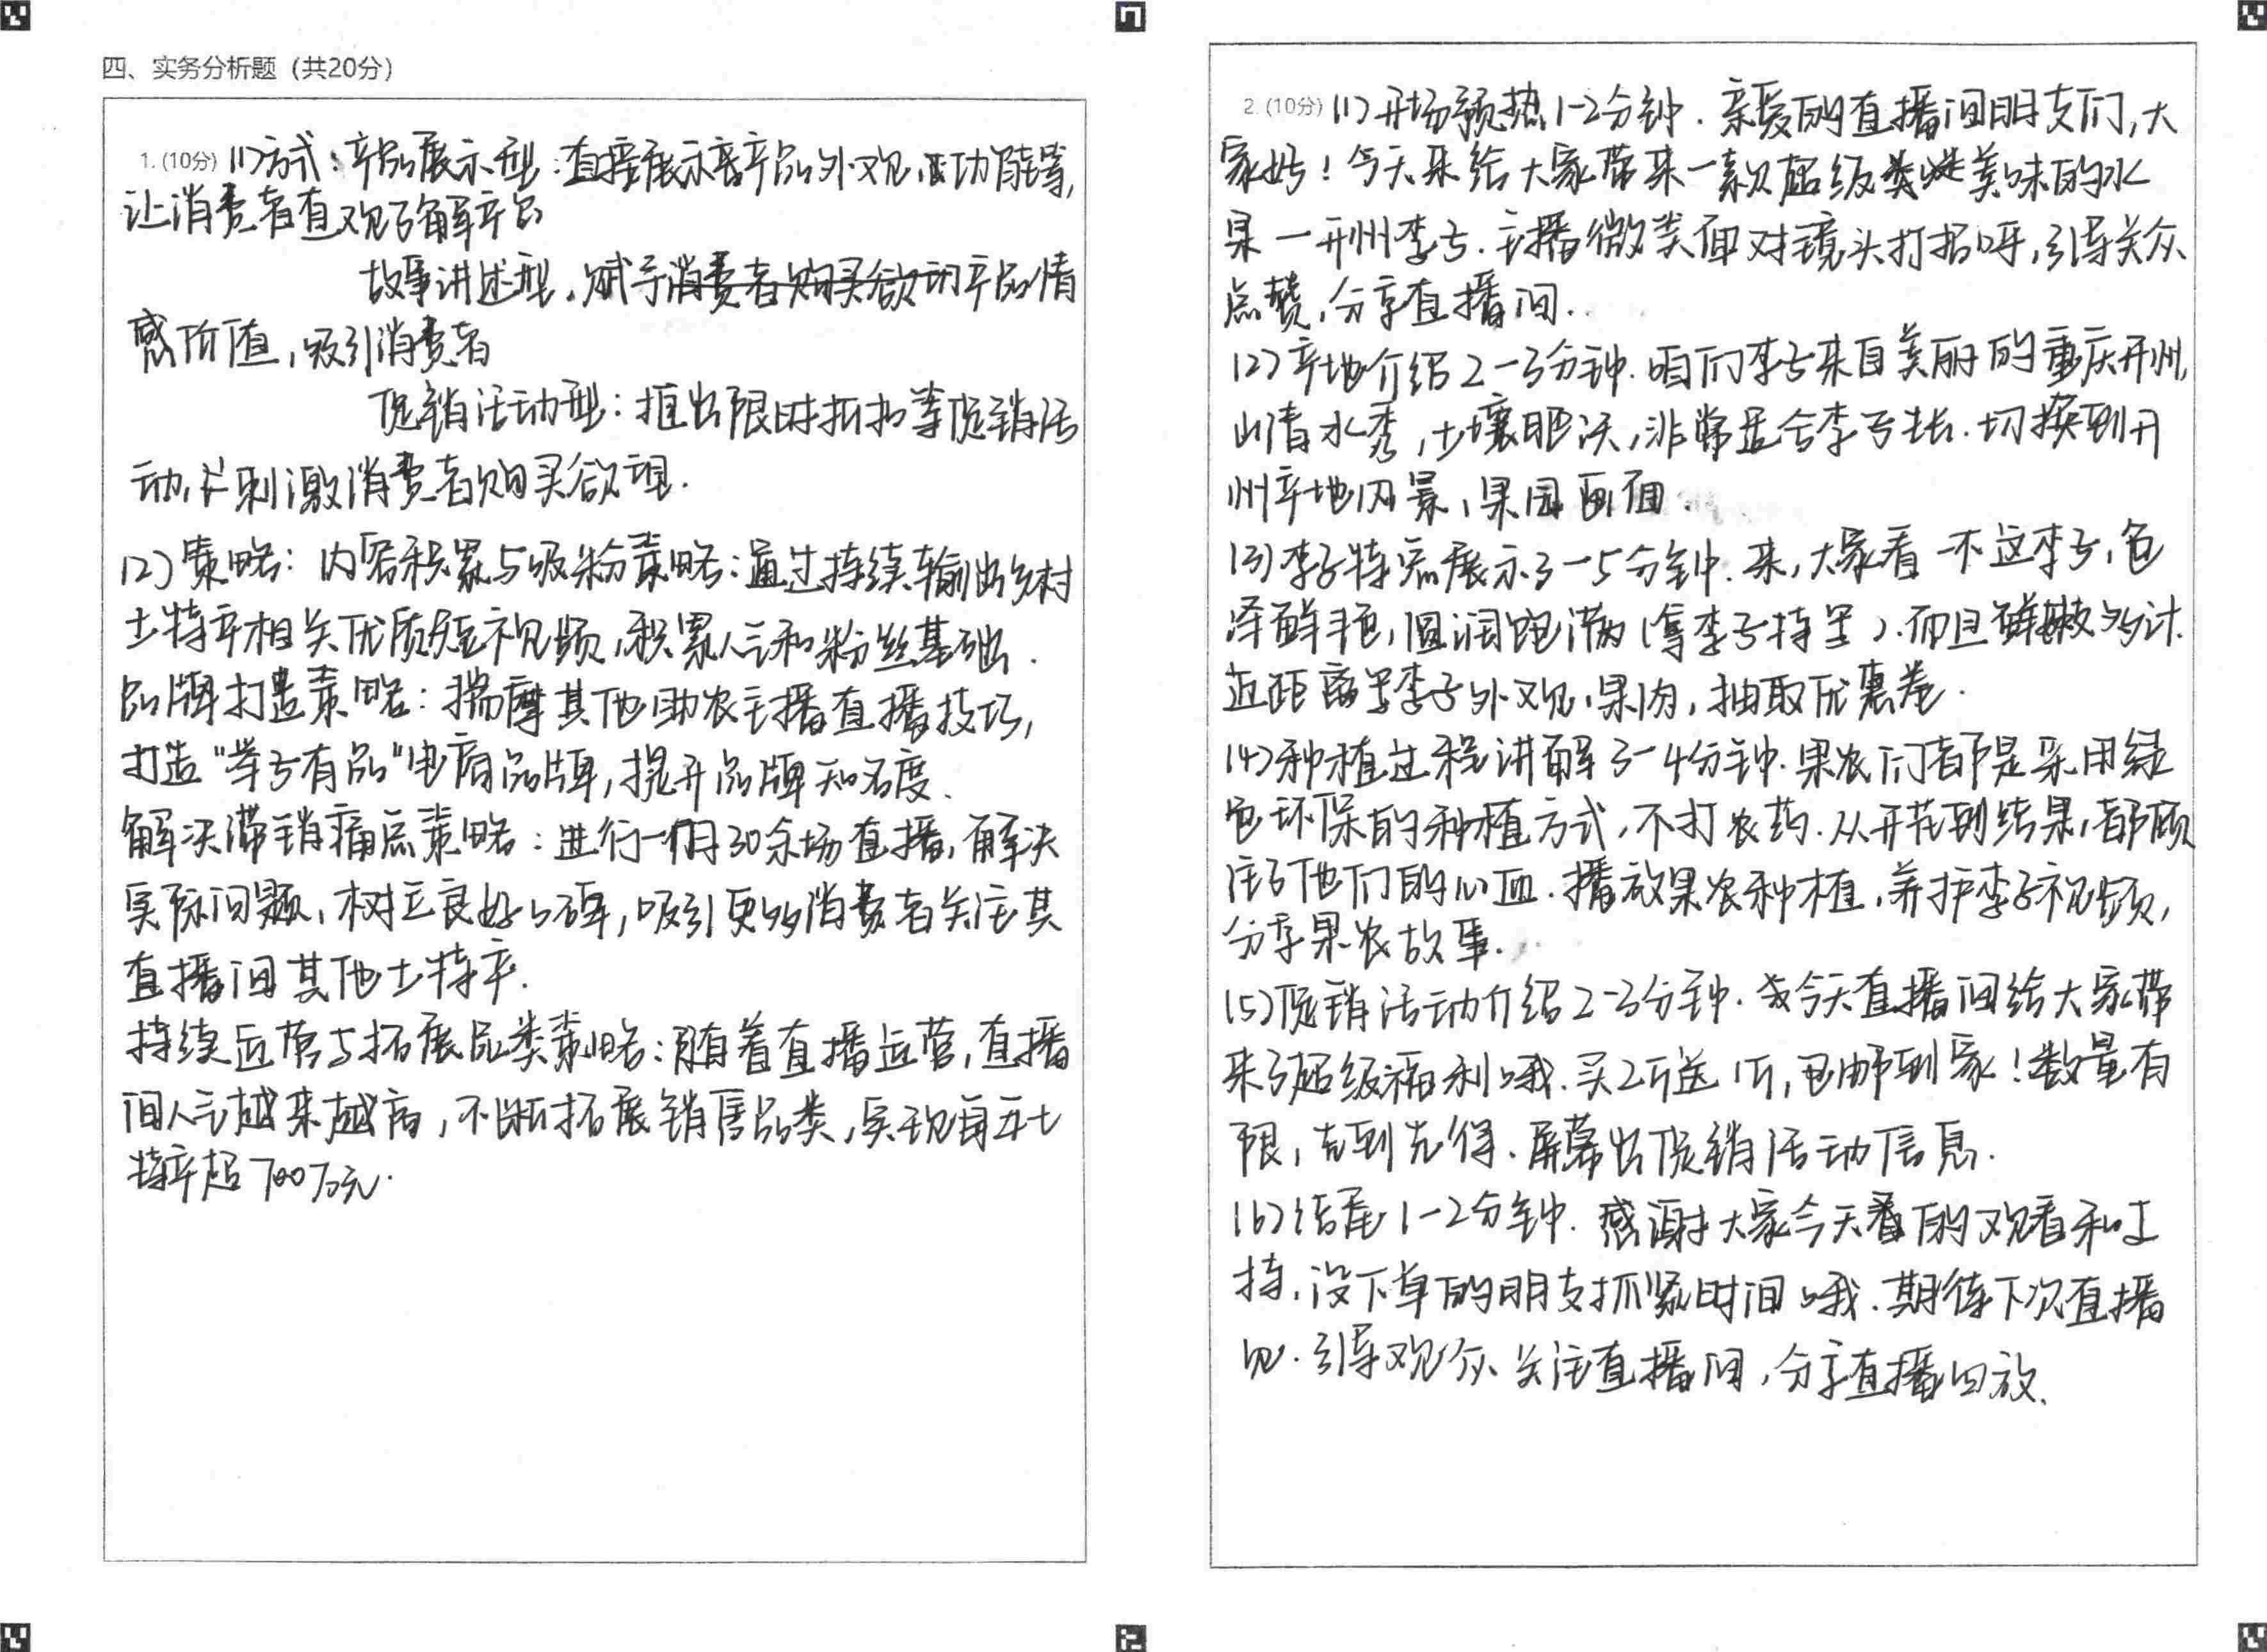 四、实务分析题（共20分）
1. (10分) (1)方式：产品展示型：直接展示产品外观、功能等，
让消费者直观了解产品
故事讲述型，赋予产品情
感价值，吸引消费者
促销活动型：推出限时折扣等促销活
动，刺激消费者购买欲望.
(2)策略：内容积累与吸粉策略：通过持续输出乡村
土特产相关优质短视频，积累人气和粉丝基础.
品牌打造策略：揣摩其他助农主播直播技巧，
打造“举子有品”电商品牌，提升品牌知名度、
解决滞销痛点策略：进行一月30余场直播，解决
实际问题，树立良好口碑，吸引更多消费者关注其
直播间其他土特产.
持续运营与拓展品类策略：随着直播运营，直播
间人气越来越高，不断拓展销售品类，实现每五土
特产超700万元.
2. (10分) (1)开场预热1-2分钟. 亲爱的直播间朋友们，大
家好！今天来给大家带来一款超级美味的水
果—开州李子. 主播微笑面对镜头打招呼，引导关众
点赞，分享直播间.
(2)产地介绍2-3分钟. 咱们李子来自美丽的重庆开州，
山清水秀，土壤肥沃，非常适合李子生长. 切换到开
州产地风景，果园画面.
(3)李子特点展示3-5分钟. 来，大家看一下这李子，色
泽鲜艳，圆润饱满（拿李子特写）. 而且鲜嫩多汁.
近距离李子外观，果肉，抽取优惠卷.
(4)种植过程讲解3-4分钟. 果农们都是采用绿
色环保的种植方式，不打农药. 从开花到结果，都倾
注了他们的心血. 播放果农种植，养护李子视频，
分享果农故事.
(5)促销活动介绍2-3分钟. 今天直播间给大家带
来了超级福利哦. 买2斤送1斤，包邮到家！数量有
限，先到先得. 屏幕出促销活动信息.
(6)结尾1-2分钟. 感谢大家今天的观看和支
持，没下单的朋友抓紧时间哦. 期待下次直播
见. 引导观众关注直播间，分享直播回放.